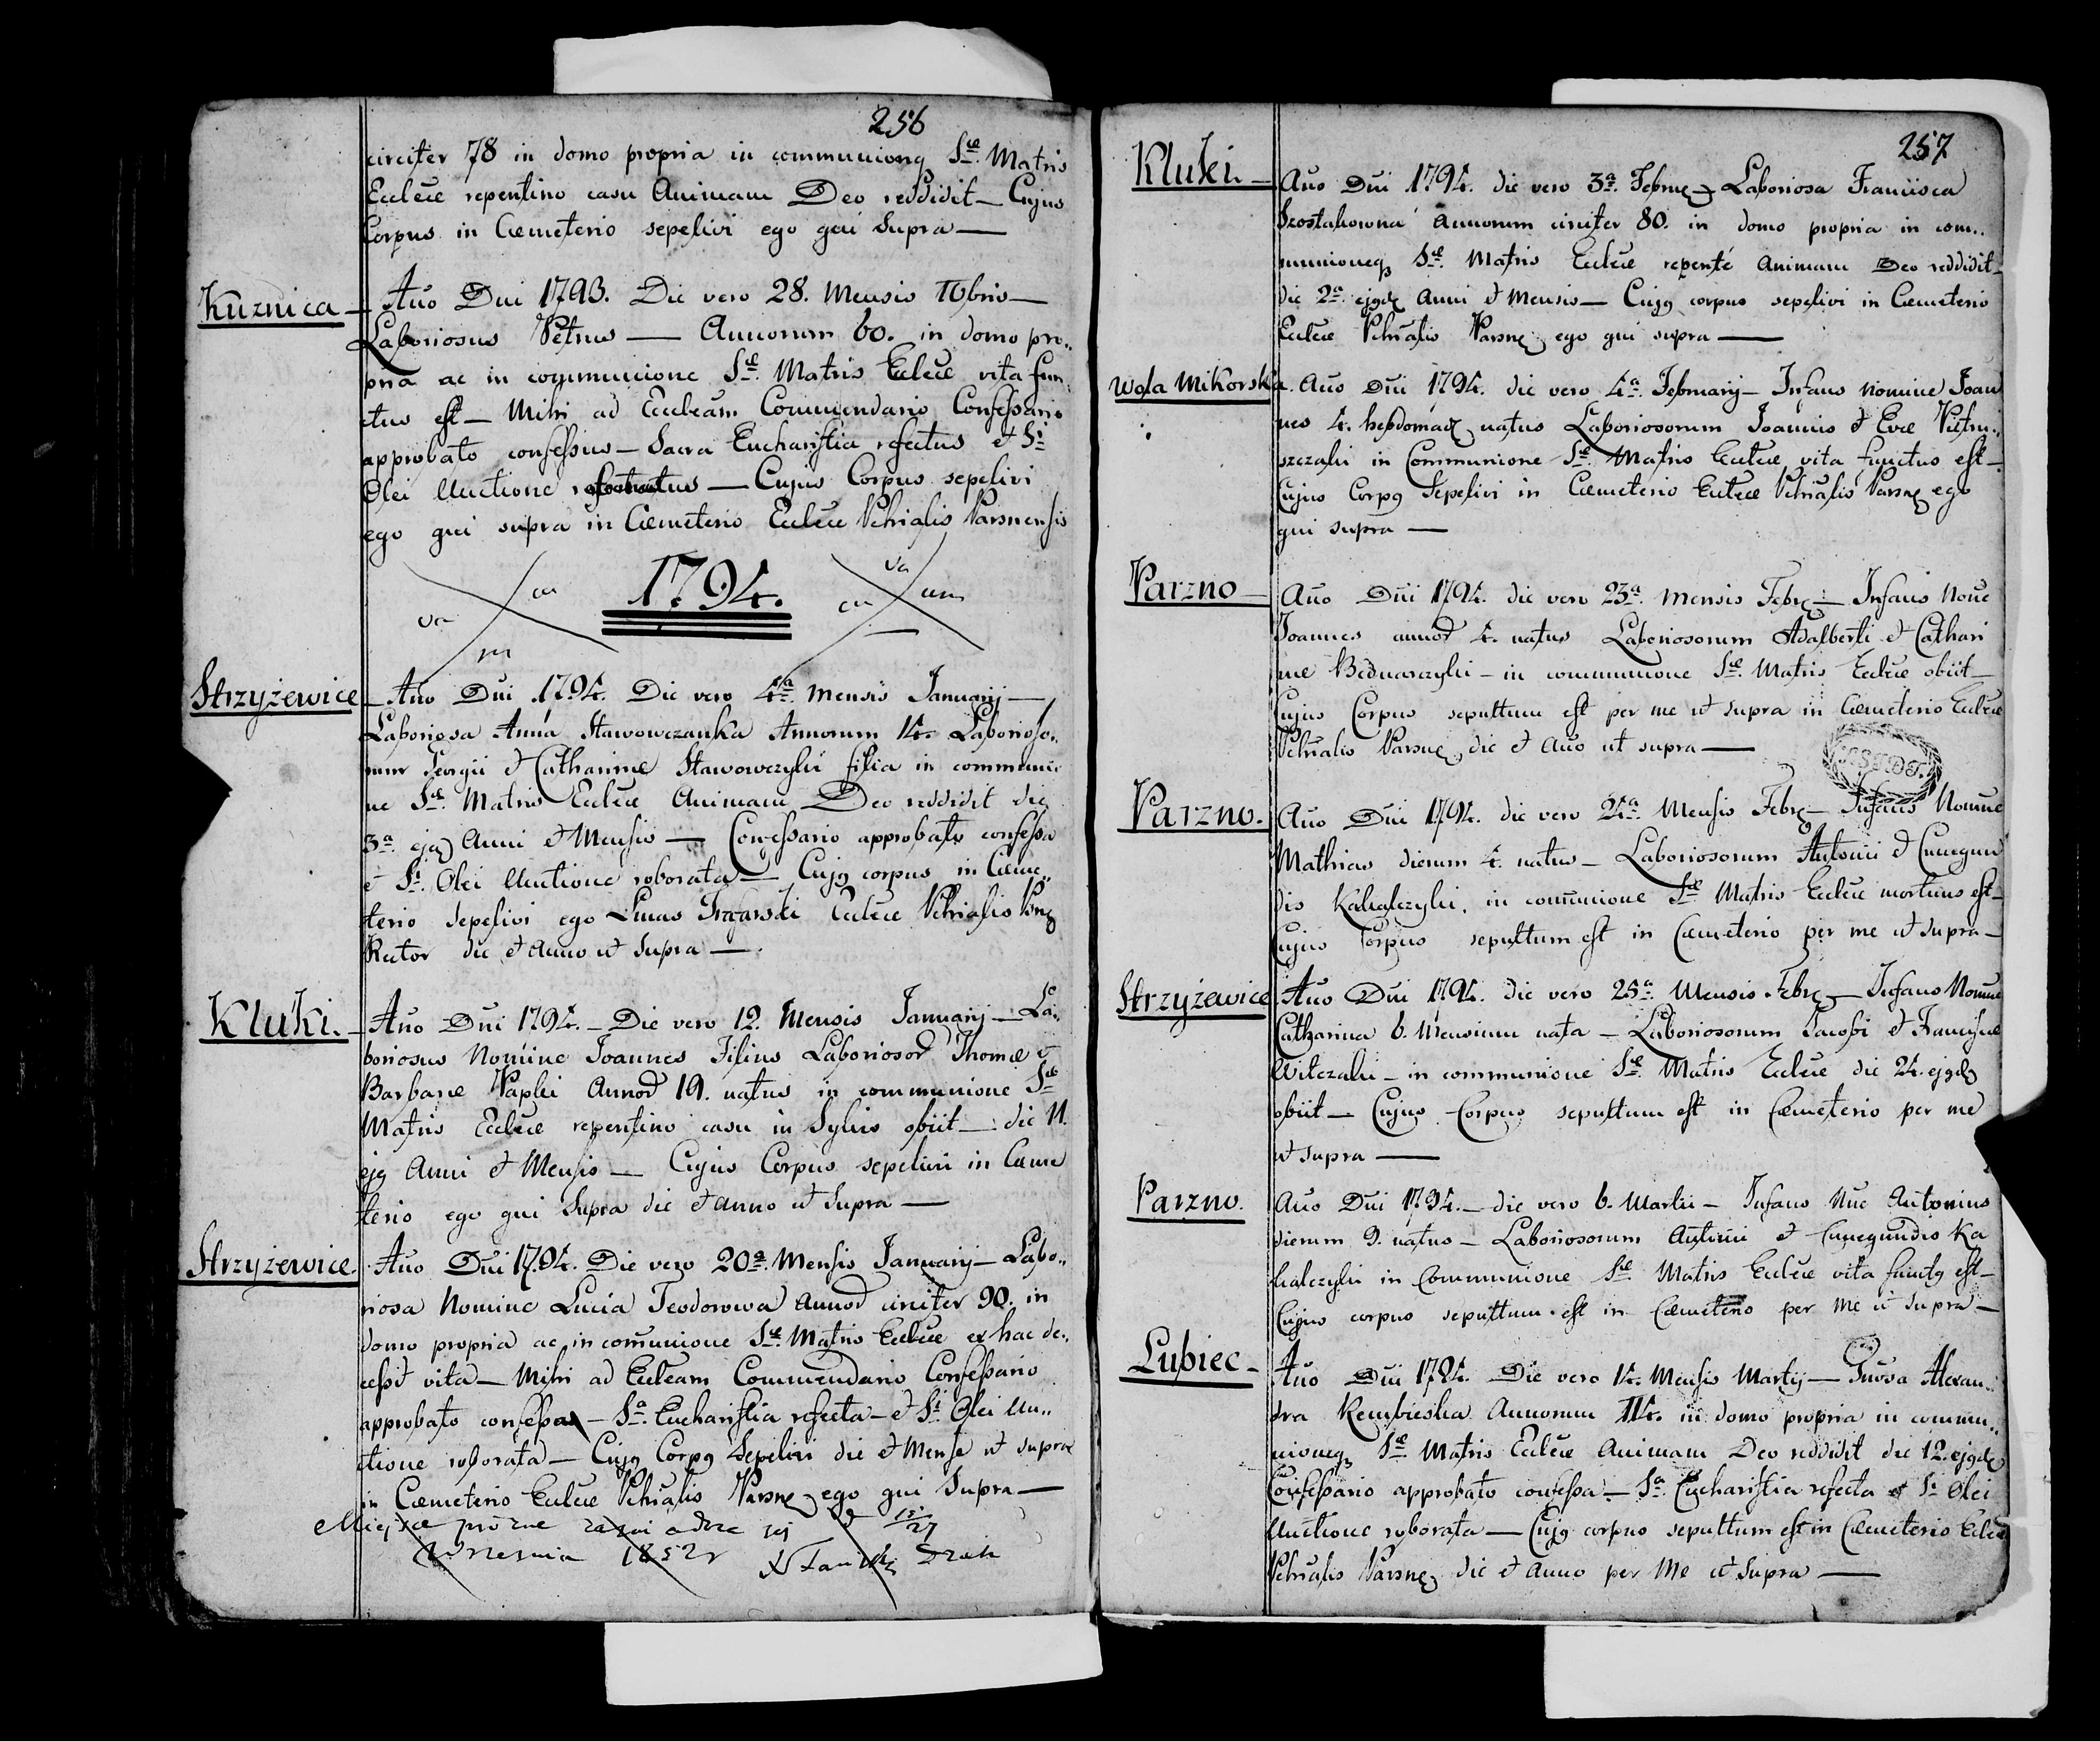 256
circiter 78 in domo propria in communioneq Stæ Matris
Eccleæ repentino casu Animam Deo reddidit — Cujus
Corpus in Cæmeterio sepelivi ego qui Supra —
Kuznica — Ano Dni 1793. Die vero 28. Mensis Xbris —
Laboriosus Petrus — Annorum 60. in domo pro..
pria ac in communione Stæ Matris Eccleæ vita fun
ctus est — Mihi ad Eccleam Commendario Confessario
approbato confessus — Sacra Eucharistia refectus et Sti
Olei Unctione — Cujus Corpus sepelivi
ego qui supra in Cæmeterio Eccleæ Pchialis Parsnensis
va ca 1794. va ca
Strzyżewice — Ano Dni 1794. Die vero 4ta mensis Januarij —
Laboriosa Anna Stawowczanka Annorum 14. Laborioso..
rum Georgii et Catharinæ Stawowczyki filia in communio
ne Stæ Matris Eccleæ Animam Deo reddidit die
3a ejq Anni et Mensis — Confessario approbato confessa
et Sti Olei Unctione roborata — Cujq corpus in Cæme..
terio sepelivi ego Lucas Eccleæ Pchialis
Rector die et Anno ut Supra —
Kluki. — Ano Dni 1794. — Die vero 12. Mensis Januarij — La..
boriosus Nomine Joannes Filius Laboriosor Thomæ et
Barbaræ Annor 19. natus in communione Stæ
Matris Eccleæ repentino casu in Sylvis obiit — die 11.
ejq Anni et Mensis — Cujus Corpus sepelivi in Cæme
terio ego qui Supra die et anno ut Supra —
Strzyżewice. Ano Dni 1794. Die vero 20a Mensis Januarij — Labo..
riosa Nomine Lucia Teodorowa Annor circiter 90. in
domo propria ac in comunione Stæ Matris Eccleæ ex hac de..
cessit vita — Mihi ad Eccleam Commendario Confessario
approbato confessa — Sa Eucharistia refecta — et Sti Olei Un..
ctione roborata — Cujq Corpq Sepelivi die et Mense ut supra
in Cæmeterio Eccleæ Pchialis Parsne ego qui Supra —
Miejsce prożne 15/27
Wrzesnia 1852 r
257
Kluki. — Ano Dni 1794. die vero 3a Febrne Laboriosa Francisca
Szostakowna Annorum circiter 80. in domo propria in com..
munioneq Stæ Matris Eccleæ repente Animam Deo reddidit —
die 2a ejqd Anni et Mensis — Cujq corpus sepelivi in Cæmeterio
Eccleæ Pchialis Parsne ego qui supra —
Wola Mikorska. Ano Dni 1794. die vero 4a Februarij — Infans nomine Joan
nes 4. hebdomad natus Laboriosorum Joannis et Evæ
in Communione Stæ Matris Eccleæ vita functus est —
Cujus Corpq Sepelivi in Cæmeterio Eccleæ Pchialis Parsne ego
qui supra —
Parzno — Ano Dni 1794. die vero 23a Mensis Febre — Infans None
Joannes annor 4. natus Laboriosorum Adalberti et Cathari
næ Bednarczyki — in communione Stæ Matris Eccleæ obiit —
Cujus Corpus sepultum est per me ut supra in Cæmeterio Eccleæ
Pchialis Parsne die et Ano ut supra —
Parzno. Ano Dni 1794. die vero 24a Mensis Febre — Infans Nomine
Mathias dierum 4. natus — Laboriosorum Antonii et Cunegun
dis Kahalczyki. in comunione Stæ Matris Eccleæ mortuus est —
Cujus Corpus sepultum est in Cæmeterio per me ut Supra —
Strzyżewice Ano Dni 1794. die vero 25a Mensis Febre — Infans Nomine
Catharina 6. Mensium nata — Laboriosorum Jacobi et Franciscæ
Wilczaki — in communione Stæ Matris Eccleæ die 24. ejqd
obiit — Cujus Corpus sepultum est in Cæmeterio per me
ut supra —
Parzno. Ano Dni 1794. — die vero 6. Martii — Infans Nne Antonius
dierum 9. natus — Laboriosorum Antonii et Cunegundis Ka
halczyki in Communione Stæ Matris Eccleæ vita functq est —
Cujus corpus sepultum est in Cæmeterio per me ut supra —
Lubiec — Ano Dni 1794. Die vero 14. Mensis Martij — Alexan..
dra Rembieska Annorum 114. in domo propria in commu..
nioneq Stæ Matris Eccleæ Animam Deo reddidit die 12. ejqd
Confessario approbato confessa — Sa Eucharistia refecta et Sti Olei
Unctione roborata — Cujq corpus sepultum est in Cæmeterio Eccleæ
Pchialis Parsne die et anno per Me ut Supra —